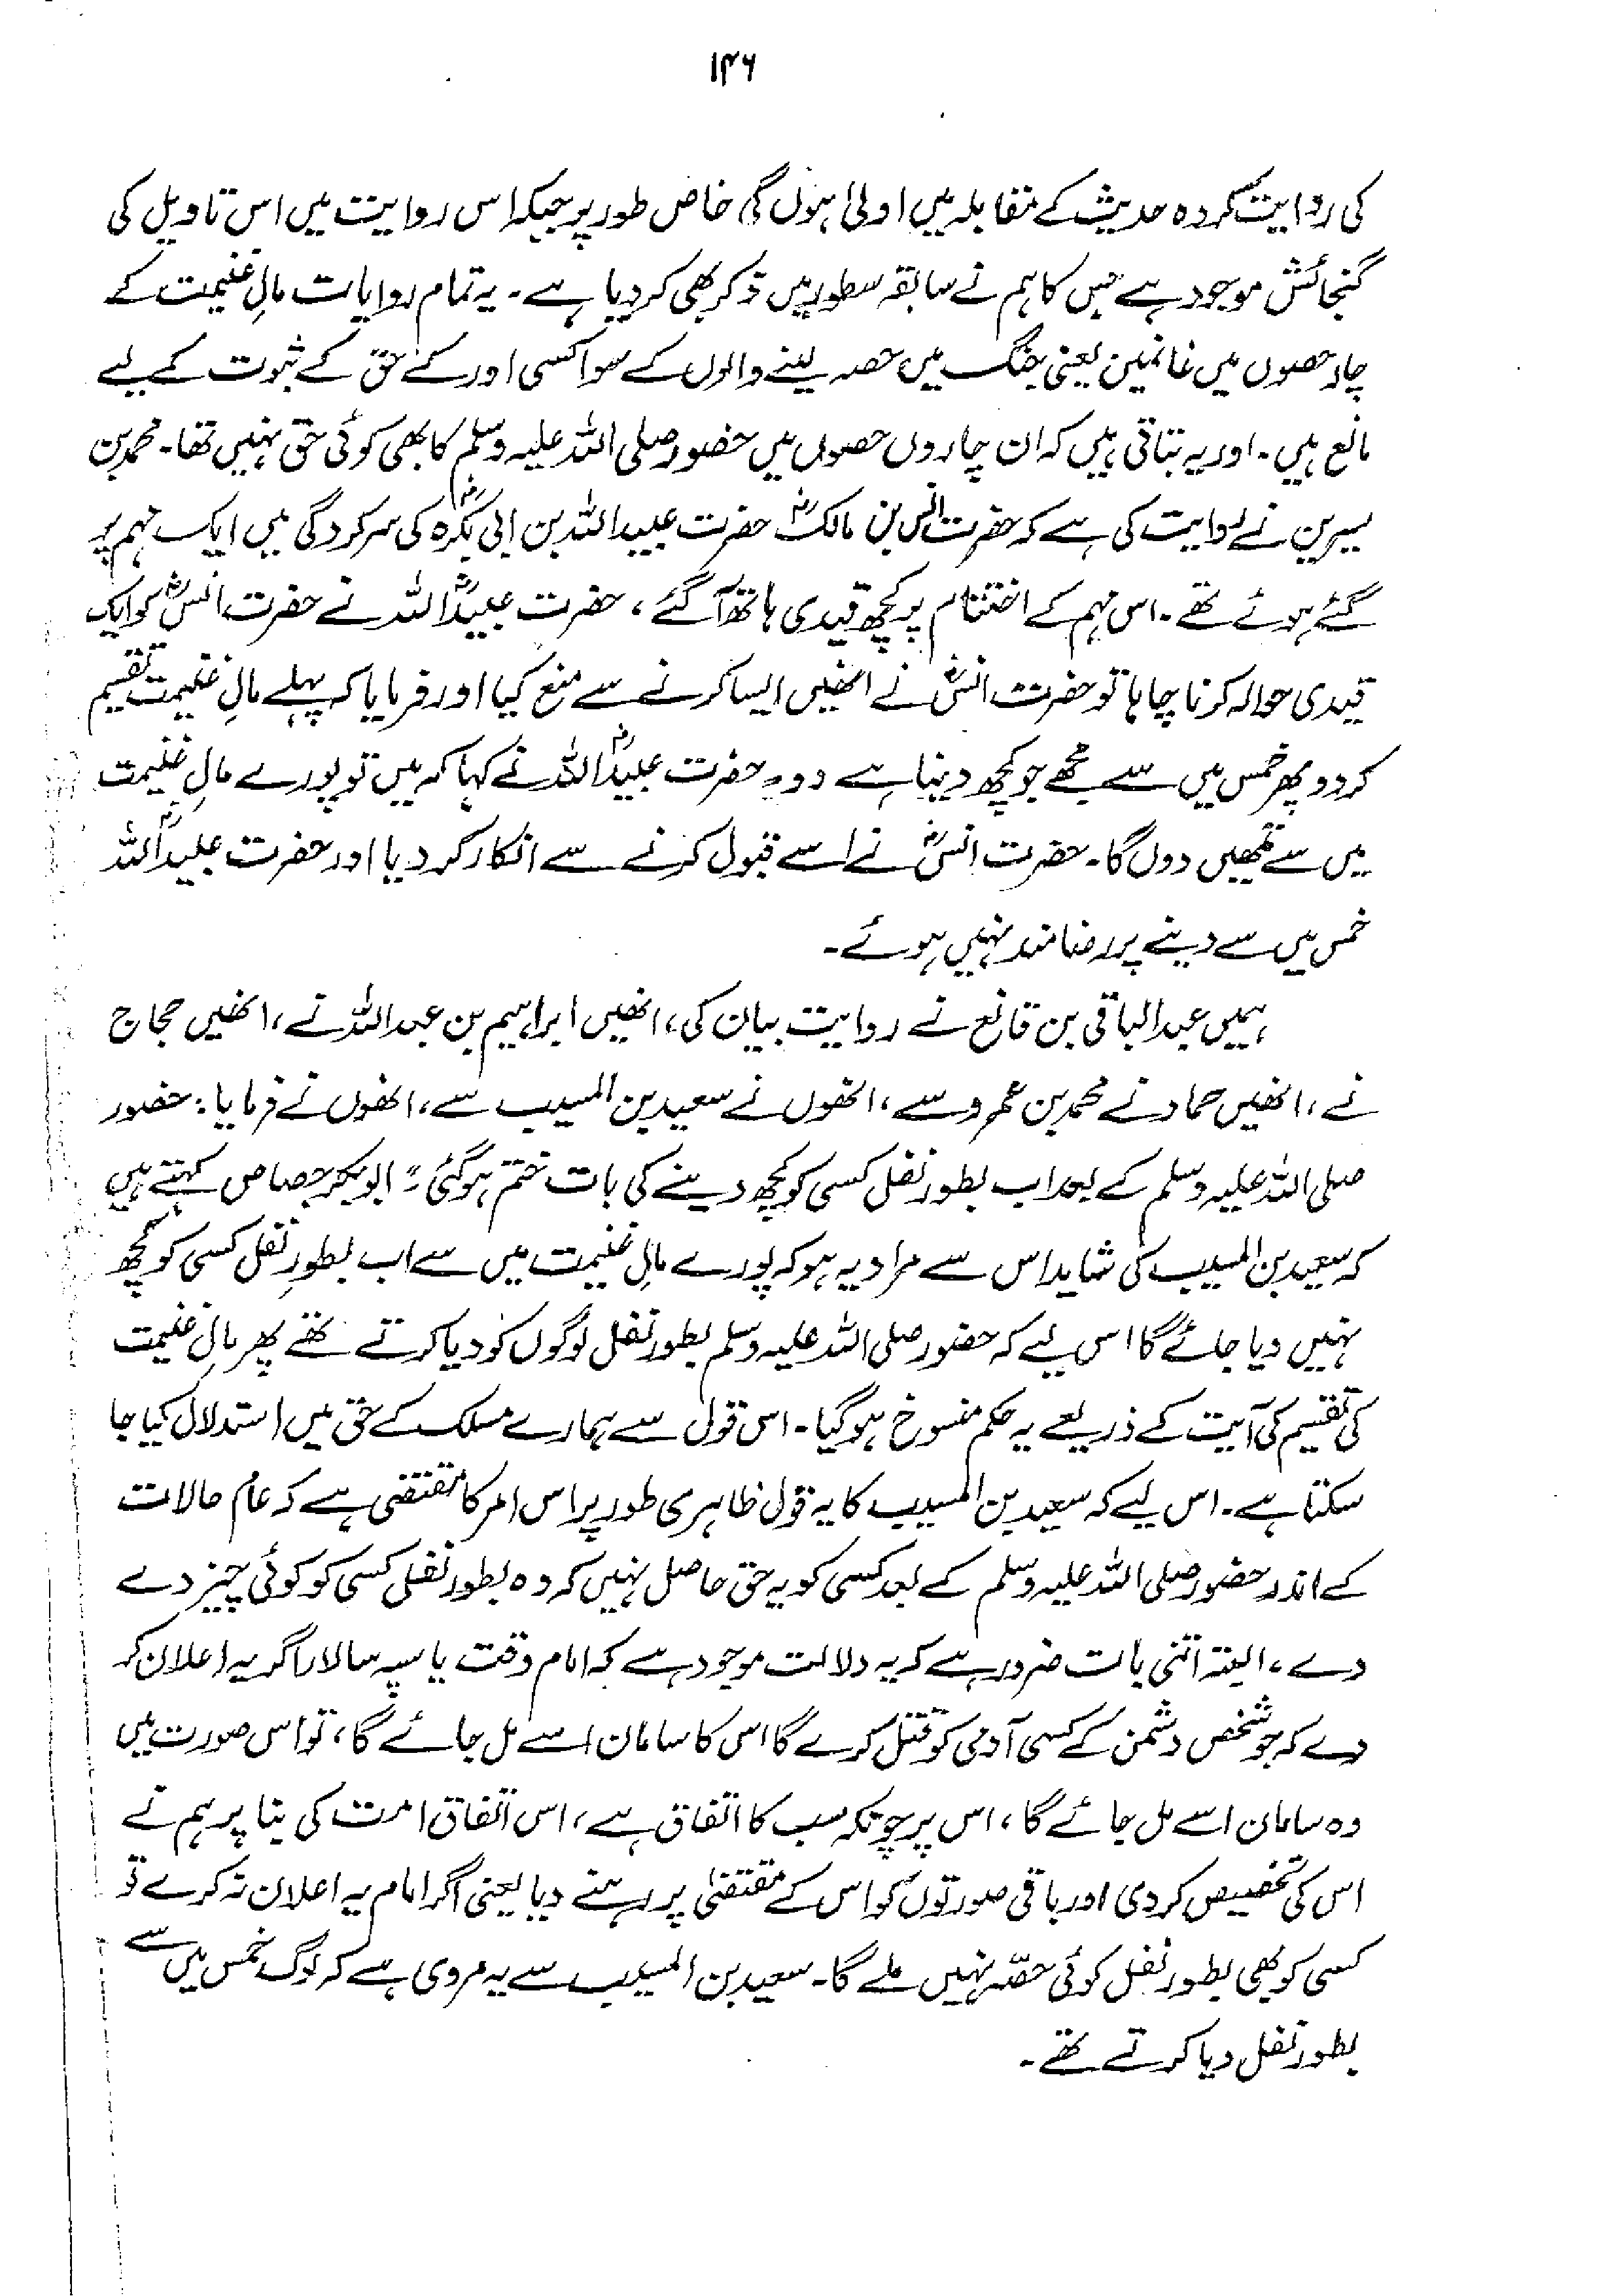 ۱۴۶
کی روایت کردہ حدیث کے مقابلہ میں اولیٰ ہوں گی خاص طور پر جبکہ اس روایت میں اس تاویل کی
گنجائش موجود ہے جس کا ہم نے سابقہ سطور میں ذکر بھی کر دیا ہے۔ یہ تمام روایات مالِ غنیمت کے
چار حصوں میں غانمین یعنی جنگ میں حصہ لینے والوں کے سوا کسی اور کے حق کے ثبوت کے لیے
مانع ہیں۔ اور یہ بتاتی ہیں کہ ان چاروں حصوں میں حضور صلی اللہ علیہ وسلم کا بھی کوئی حق نہیں تھا۔ محمد بن
سیرین نے روایت کی ہے کہ حضرت انس بن مالکؓ حضرت عبیداللہ بن ابی بکرہؓ کی سرکردگی میں ایک مہم پر
گئے ہوئے تھے۔ اس مہم کے اختتام پر کچھ قیدی ہاتھ آگئے، حضرت عبیداللہؓ نے حضرت انسؓ کو ایک
قیدی حوالہ کرنا چاہا تو حضرت انسؓ نے انھیں ایسا کرنے سے منع کیا اور فرمایا کہ پہلے مالِ غنیمت تقسیم
کر دو پھر خمس میں سے مجھے جو کچھ دینا ہے دو۔ حضرت عبیداللہؓ نے کہا کہ میں تو پورے مالِ غنیمت
میں سے تمھیں دوں گا۔ حضرت انسؓ نے اسے قبول کرنے سے انکار کر دیا اور حضرت عبیداللہؓ
خمس میں سے دینے پر رضامند نہیں ہوئے۔
ہمیں عبدالباقی بن قانع نے روایت بیان کی، انھیں ابراہیم بن عبداللہ نے، انھیں حجاج
نے، انھیں حماد نے محمد بن عمرو سے، انھوں نے سعید بن المسیب سے، انھوں نے فرمایا: حضور
صلی اللہ علیہ وسلم کے بعد اب بطور نفل کسی کو کچھ دینے کی بات ختم ہوگئی"۔ ابوبکر جصاص کہتے ہیں
کہ سعید بن المسیب کی شاید اس سے مراد یہ ہو کہ پورے مالِ غنیمت میں سے اب بطورِ نفل کسی کو کچھ
نہیں دیا جائے گا اس لیے کہ حضور صلی اللہ علیہ وسلم بطور نفل لوگوں کو دیا کرتے تھے پھر مالِ غنیمت
کی تقسیم کی آیت کے ذریعے یہ حکم منسوخ ہوگیا۔ اس قول سے ہمارے مسلک کے حق میں استدلال کیا جا
سکتا ہے۔ اس لیے کہ سعید بن المسیب کا یہ قول ظاہری طور پر اس امر کا مقتضی ہے کہ عام حالات
کے اندر حضور صلی اللہ علیہ وسلم کے بعد کسی کو یہ حق حاصل نہیں کہ وہ بطور نفل کسی کو کوئی چیز دے
دے، البتہ اتنی بات ضرور ہے کہ یہ دلالت موجود ہے کہ امام وقت یا سپہ سالار اگر یہ اعلان کر
دے کہ جو شخص دشمن کے کسی آدمی کو قتل کرے گا اس کا سامان اسے مل جائے گا، تو اس صورت میں
وہ سامان اسے مل جائے گا، اس پر چونکہ سب کا اتفاق ہے، اس اتفاق امت کی بنا پر ہم نے
اس کی تخصیص کر دی اور باقی صورتوں کو اس کے مقتضیٰ پر رہنے دیا یعنی اگر امام یہ اعلان نہ کرے تو
کسی کو بھی بطور نفل کوئی حصّہ نہیں ملے گا۔ سعید بن المسیب سے یہ مروی ہے کہ لوگ خمس میں سے
بطور نفل دیا کرتے تھے۔